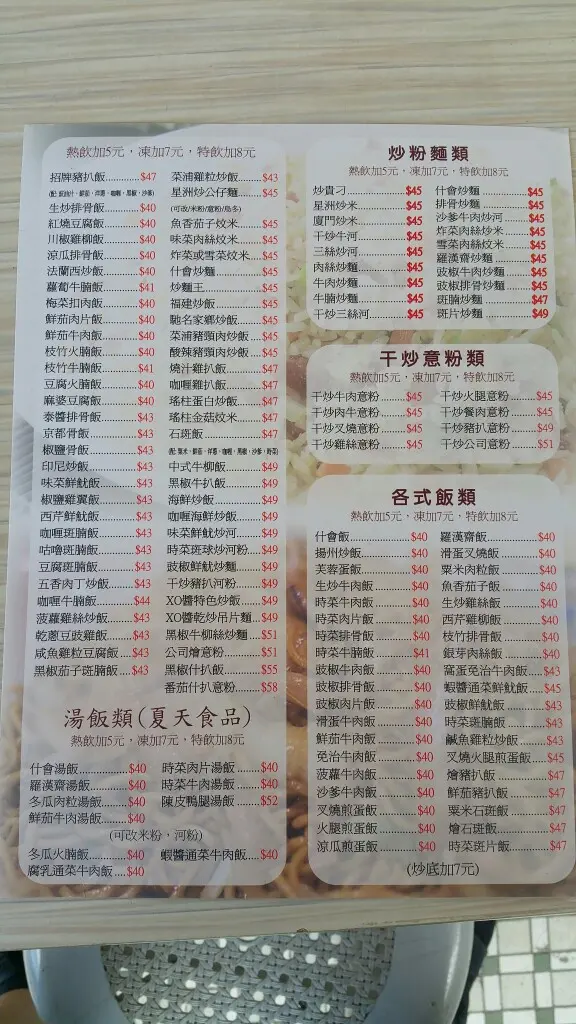 熱飲加5元，凍加7元，特飲加8元
招牌豬扒飯............$47
生炒排骨飯............$40
紅燒豆腐飯............$40
川椒雞柳飯............$40
涼瓜排骨飯............$40
法蘭西炒飯............$40
蘿蔔牛腩飯............$41
梅菜扣肉飯............$40
鮮茄肉片飯............$40
鮮茄牛肉飯............$40
枝竹火腩飯............$40
枝竹牛腩飯............$41
豆腐火腩飯............$40
麻婆豆腐飯............$40
泰醬排骨飯............$43
京都骨飯............$43
椒鹽骨飯............$43
印尼炒飯............$43
味菜鮮魷飯............$43
椒鹽雞翼飯............$43
西芹鮮魷飯............$43
咖喱斑腩飯............$43
咕嚕斑腩飯............$43
豆腐斑腩飯............$43
五香肉丁炒飯........$43
咖喱牛腩飯............$44
菠蘿雞絲炒飯........$43
乾蔥豆豉雞飯........$43
咸魚雞粒豆腐飯....$43
黑椒茄子斑腩飯....$43
菜浦雞粒炒飯......$43
星洲炒公仔麵......$45
(可改/米粉/意粉/烏冬)
魚香茄子炆米......$45
味菜肉絲炆米......$45
炸菜或雪菜炆米...$45
什會炒麵............$45
炒麵王............$45
福建炒飯............$45
馳名家鄉炒飯......$45
菜浦豬頸肉炒飯...$45
酸辣豬頸肉炒飯...$45
燒汁雞扒飯.........$47
咖喱雞扒飯.........$47
瑤柱蛋白炒飯......$47
瑤柱金菇炆米......$47
石斑飯............$47
中式牛柳飯.........$49
黑椒牛扒飯.........$49
海鮮炒飯............$49
咖喱海鮮炒飯......$49
味菜鮮魷炒河......$49
時菜斑球炒河粉...$49
豉椒鮮魷炒麵......$49
干炒豬扒河粉......$49
XO醬特色炒飯......$49
XO醬乾炒吊片麵...$49
黑椒牛柳絲炒麵...$51
公司燴意粉.........$51
黑椒什扒飯.........$55
番茄什扒意粉......$58
湯飯類(夏天食品)
熱飲加5元，凍加7元，特飲加8元
什會湯飯............$40
羅漢齋湯飯.........$40
冬瓜肉粒湯飯......$40
鮮茄牛肉湯飯......$40
時菜肉片湯飯......$40
時菜牛肉湯飯......$40
陳皮鴨腿湯飯......$52
(可改米粉，河粉)
冬瓜火腩飯............$40
腐乳通菜牛肉飯....$40
蝦醬通菜牛肉飯...$40
炒粉麵類
熱飲加5元，凍加7元，特飲加8元
炒貴刁............$45
星洲炒米............$45
廈門炒米............$45
干炒牛河............$45
三絲炒河............$45
肉絲炒麵............$45
牛肉炒麵............$45
牛腩炒麵............$45
干炒三絲河.........$45
什會炒麵............$45
排骨炒麵............$45
沙爹牛肉炒河......$45
炸菜肉絲炆米......$45
雪菜肉絲炆米......$45
羅漢齋炒麵.........$45
豉椒牛肉炒麵......$45
豉椒排骨炒麵......$45
斑腩炒麵............$47
斑片炒麵............$49
干炒意粉類
熱飲加5元，凍加7元，特飲加8元
干炒牛肉意粉.....$45
干炒肉牛意粉.....$45
干炒叉燒意粉.....$45
干炒雞絲意粉.....$45
干炒火腿意粉.....$45
干炒餐肉意粉.....$45
干炒豬扒意粉.....$49
干炒公司意粉.....$51
各式飯類
熱飲加5元，凍加7元，特飲加8元
什會飯............$40
揚州炒飯............$40
芙蓉蛋飯............$40
生炒牛肉飯.........$40
時菜牛肉飯.........$40
時菜肉片飯.........$40
時菜排骨飯.........$40
時菜牛腩飯.........$41
豉椒牛肉飯.........$40
豉椒排骨飯.........$40
豉椒肉片飯.........$40
滑蛋牛肉飯.........$40
鮮茄牛肉飯.........$40
免治牛肉飯.........$40
菠蘿牛肉飯.........$40
沙爹牛肉飯.........$40
叉燒煎蛋飯.........$40
火腿煎蛋飯.........$40
涼瓜煎蛋飯.........$40
羅漢齋飯............$40
滑蛋叉燒飯.........$40
粟米肉粒飯.........$40
魚香茄子飯.........$40
生炒雞絲飯.........$40
西芹雞柳飯.........$40
枝竹排骨飯.........$40
銀芽肉絲飯.........$40
窩蛋免治牛肉飯...$43
蝦醬通菜鮮魷飯...$45
豉椒鮮魷飯.........$43
時菜斑腩飯.........$43
鹹魚雞粒炒飯......$43
叉燒火腿煎蛋飯...$45
燴豬扒飯............$47
鮮茄豬扒飯.........$47
粟米石斑飯.........$47
燴石斑飯............$47
時菜斑片飯.........$47
(炒底加7元)